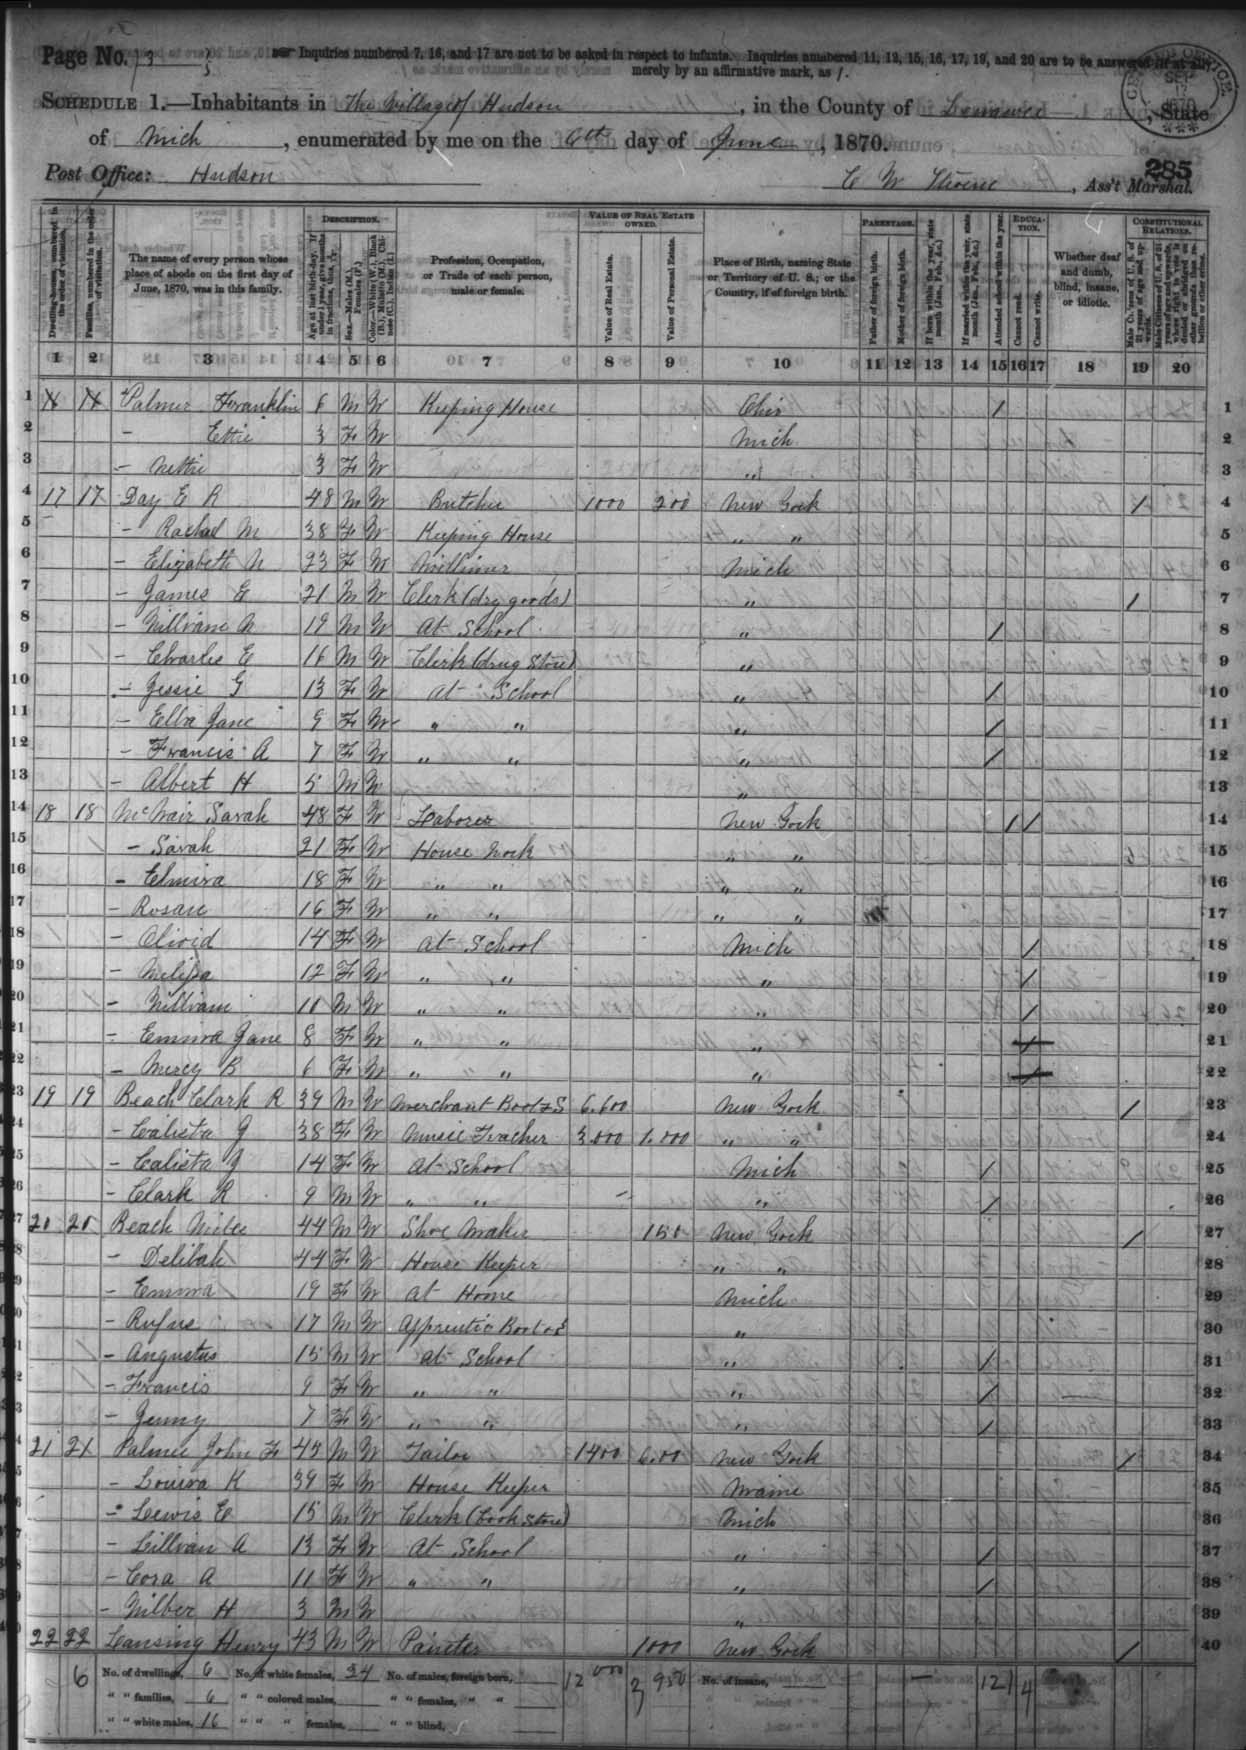 Page No. 3
Inquiries numbered 7, 16, and 17 are not to be asked in respect to infants. Inquiries numbered 11, 12, 15, 16, 17, 19, and 20 are to be answered (if at all)
merely by an affirmative mark, as /.
SCHEDULE 1.—Inhabitants in The Village of Hudson, in the County of Lenawee, State
of Mich, enumerated by me on the 6th day of June, 1870.
285
Post Office: Hudson C W Ass't Marshal.
Dwelling-houses, numbered in the order of visitation. Families, numbered in the order of visitation. The name of every person whose place of abode on the first day of June, 1870, was in this family. DESCRIPTION. Age at last birth-day. Sex.—Males (M.), Females (F.) Color.—White (W.), Black (B.), Mulatto (M.), Chinese (C.), Indian (I.) Profession, Occupation, or Trade of each person, male or female. VALUE OF REAL ESTATE OWNED. Value of Real Estate. Value of Personal Estate. Place of Birth, naming State or Territory of U. S.; or the Country, if of foreign birth. PARENTAGE. Father of foreign birth. Mother of foreign birth. If born within the year, state month (Jan., Feb., &c.) If married within the year, state month (Jan., Feb., &c.) Attended school within the year. EDUCATION. Cannot read. Cannot write. Whether deaf and dumb, blind, insane, or idiotic. CONSTITUTIONAL RELATIONS.
1 2 3 4 5 6 7 8 9 10 11 12 13 14 15 16 17 18 19 20
1 Palmer Franklin 6 M W Keeping House Ohio / 1
2 — Ettie 3 F W Mich 2
3 — Nettie 3 F W " 3
4 17 17 Day E R 48 M W Butcher 1000 200 New York / 4
5 — Rachel M 38 F W Keeping House " " 5
6 — Elizabeth N 23 F W Milliner Mich 6
7 — James E 21 M W Clerk (dry goods) " / 7
8 — William N 19 M W At School " / 8
9 — Charles E 16 M W Clerk (drug Store) " 9
10 — Jessie G 13 F W At School " / 10
11 — Ella Jane 9 F W " " " / 11
12 — Francis A 7 F W " " " / 12
13 — Albert H 5 M W " 13
14 18 18 McNair Sarah 48 F W Laborer New York / / 14
15 — Sarah 21 F W House Work " " 15
16 — Elmira 18 F W " " " " 16
17 — Rosan 16 F W " " " " 17
18 — 14 F W At School Mich / 18
19 — Melissa 12 F W " " " / 19
20 — William 10 M W " " " / 20
21 — Emma Jane 8 F W " " " 21
22 — Mercy B 6 F W " " " 22
23 19 19 Beach Clark R 39 M W Merchant Boot & S 6.600 New York / 23
24 — Calista J 38 F W Music Teacher 3.000 1.000 " " 24
25 — Calista J 14 F W At School Mich / 25
26 — Clark R 9 M W " " " / 26
27 20 20 Beach 44 M W Shoe Maker 150 New York / 27
28 — Delilah 44 F W House Keeper " " 28
29 — Emma 19 F W At Home Mich 29
30 — Rufus 17 M W Apprentice Boot & S " 30
31 — Angustus 15 M W At School " / 31
32 — Francis 9 F W " " " / 32
33 — Jenny 7 F W " " " / 33
34 21 21 Palmer John F M W Tailor 1400 600 New York / 34
35 — Louisa K 39 F W House Keeper Maine 35
36 — Lewis E 15 M W Clerk (Book Store) Mich 36
37 — Lillian A 13 F W At School " / 37
38 — Cora A 11 F W " " " / 38
39 — Wilber H 3 M W " 39
40 22 22 Lansing Henry 43 M W Painter 1000 New York / 40
6 No. of dwellings, 6 No. of white females, 24 No. of males, foreign born, 12 000 2 950 No. of insane, 12 4
" " families, 6 " " colored males, " " females, " "
" " white males, 16 " " " females, " " blind,